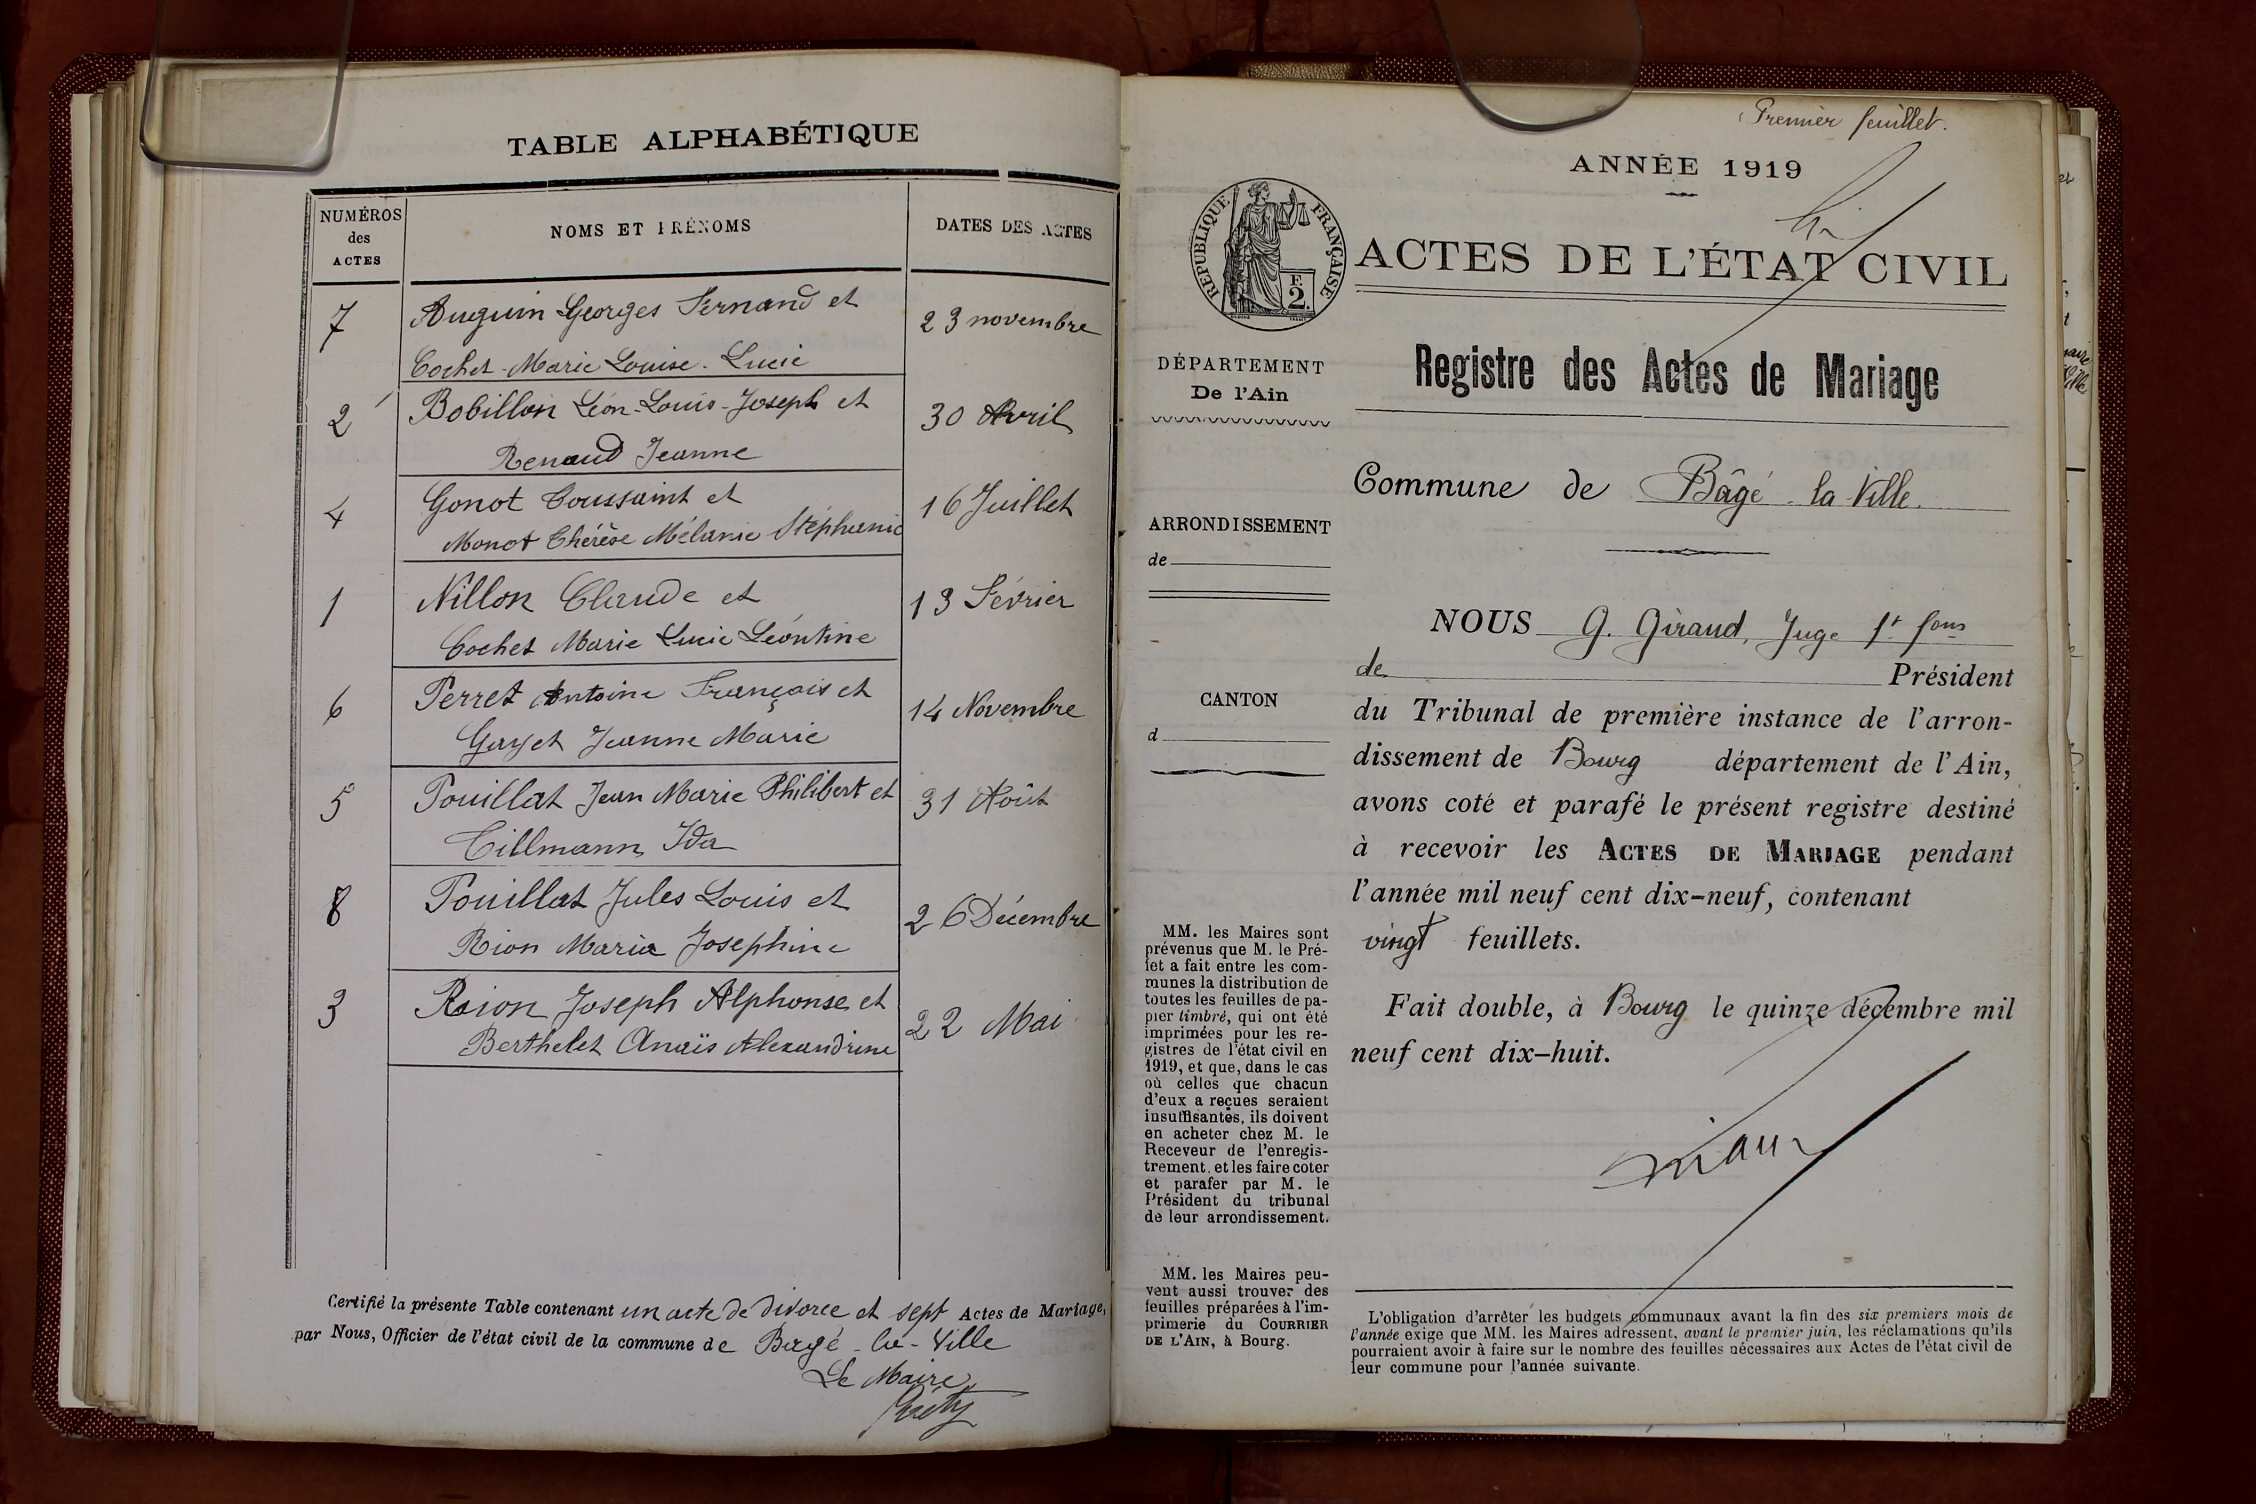 TABLE ALPHABÉTIQUE
NUMÉROS
des
ACTES
NOMS ET PRÉNOMS
DATES DES ACTES
7
Auguin Georges Fernand et
23 novembre
Cochet Marie Louise Lucie
2
Bobillon Léon-Louis-Joseph et
30 Avril
Renaud Jeanne
4
Gonot Toussaint et
16 Juillet
Monot Thérèse Mélanie Stéphanie
1
Nillon Claude et
13 Février
Cochet Marie Lucie Léontine
6
Perret Antoine François et
14 Novembre
Gayet Jeanne Marie
5
Pouillat Jean Marie Philibert et
31 Août
Tillmann Ida
8
Pouillat Jules Louis et
26 Décembre
Rion Maria Josephine
3
Rion Joseph Alphonse et
22 Mai
Berthelet Anaïs Alexandrine
Certifié la présente Table contenant un acte de divorce et sept Actes de Mariage,
par Nous, Officier de l'état civil de la commune de Bagé-la-Ville
Le Maire
Premier feuillet.
ANNÉE 1919
RÉPUBLIQUE FRANÇAISE
E
2
ACTES DE L'ÉTAT CIVIL
DÉPARTEMENT
De l'Ain
Registre des Actes de Mariage
Commune de Bâgé-la-Ville.
ARRONDISSEMENT
de
CANTON
d
NOUS G. Giraud, Juge ft fons
de Président
du Tribunal de première instance de l'arron-
dissement de Bourg département de l'Ain,
avons coté et parafé le présent registre destiné
à recevoir les ACTES DE MARIAGE pendant
l'année mil neuf cent dix-neuf, contenant
vingt feuillets.
Fait double, à Bourg le quinze décembre mil
neuf cent dix-huit.
MM. les Maires sont
prévenus que M. le Pré-
fet a fait entre les com-
munes la distribution de
toutes les feuilles de pa-
pier timbré, qui ont été
imprimées pour les re-
gistres de l'état civil en
1919, et que, dans le cas
où celles que chacun
d'eux a reçues seraient
insuffisantes, ils doivent
en acheter chez M. le
Receveur de l'enregis-
trement, et les faire coter
et parafer par M. le
Président du tribunal
de leur arrondissement.
MM. les Maires peu-
vent aussi trouver des
feuilles préparées à l'im-
primerie du COURRIER
DE L'AIN, à Bourg.
L'obligation d'arrêter les budgets communaux avant la fin des six premiers mois de
l'année exige que MM. les Maires adressent, avant le premier juin, les réclamations qu'ils
pourraient avoir à faire sur le nombre des feuilles nécessaires aux Actes de l'état civil de
leur commune pour l'année suivante.